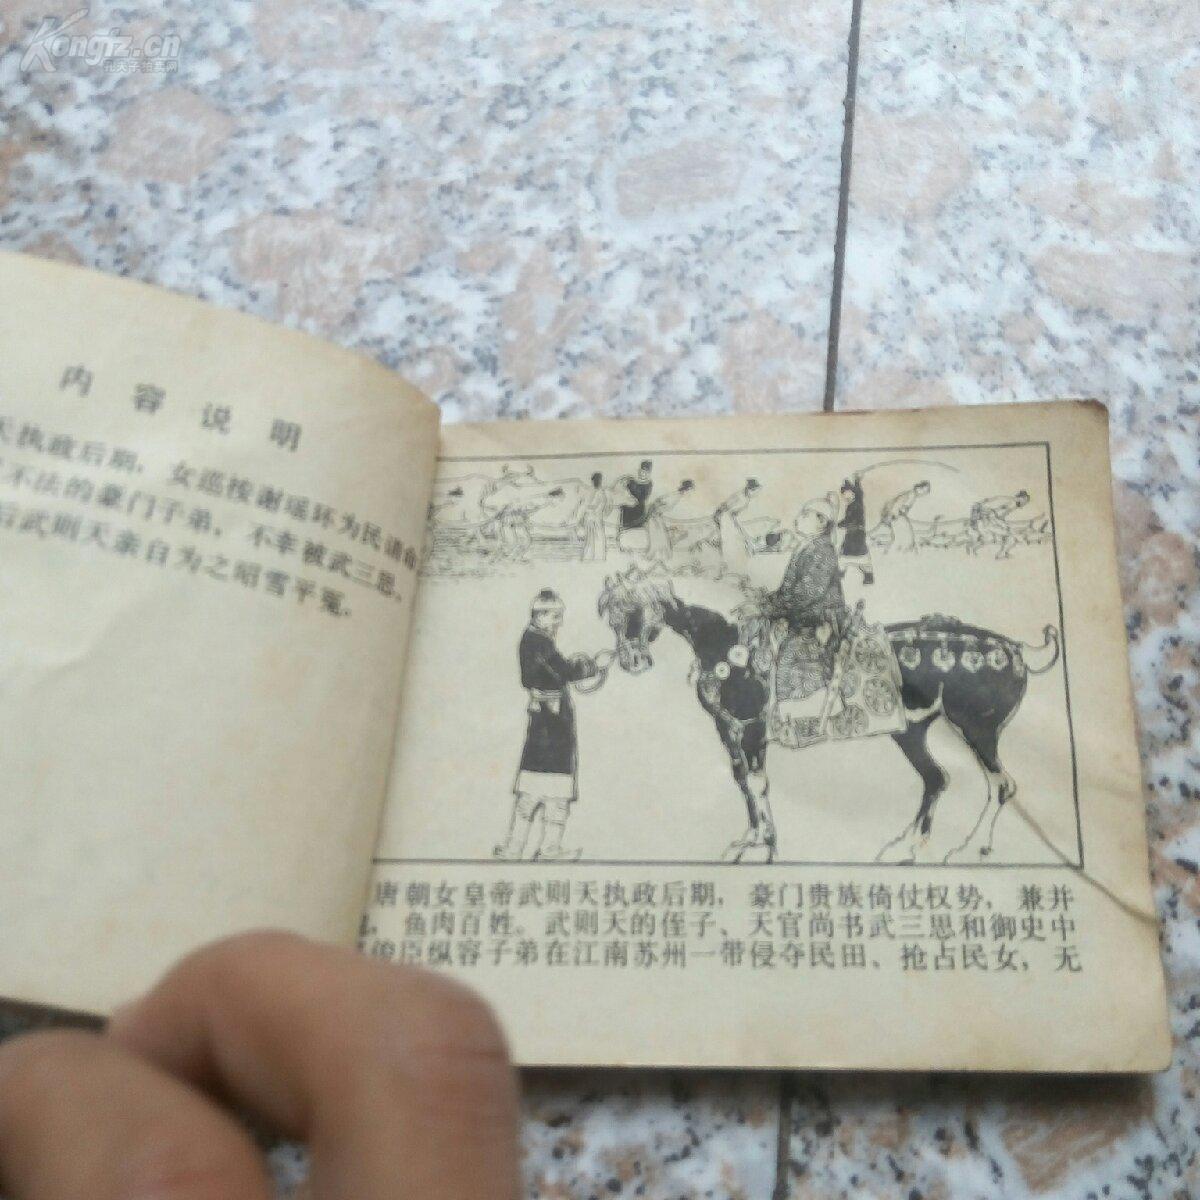 Kongfz.cn
孔夫子拍卖网
内容说明
天执政后期，女巡按谢瑶环为民请命
不法的豪门子弟，不幸被武三思
后武则天亲自为之昭雪平冤.
唐朝女皇帝武则天执政后期，豪门贵族倚仗权势，兼并
，鱼肉百姓。武则天的侄子、天官尚书武三思和御史中
俊臣纵容子弟在江南苏州一带侵夺民田、抢占民女，无